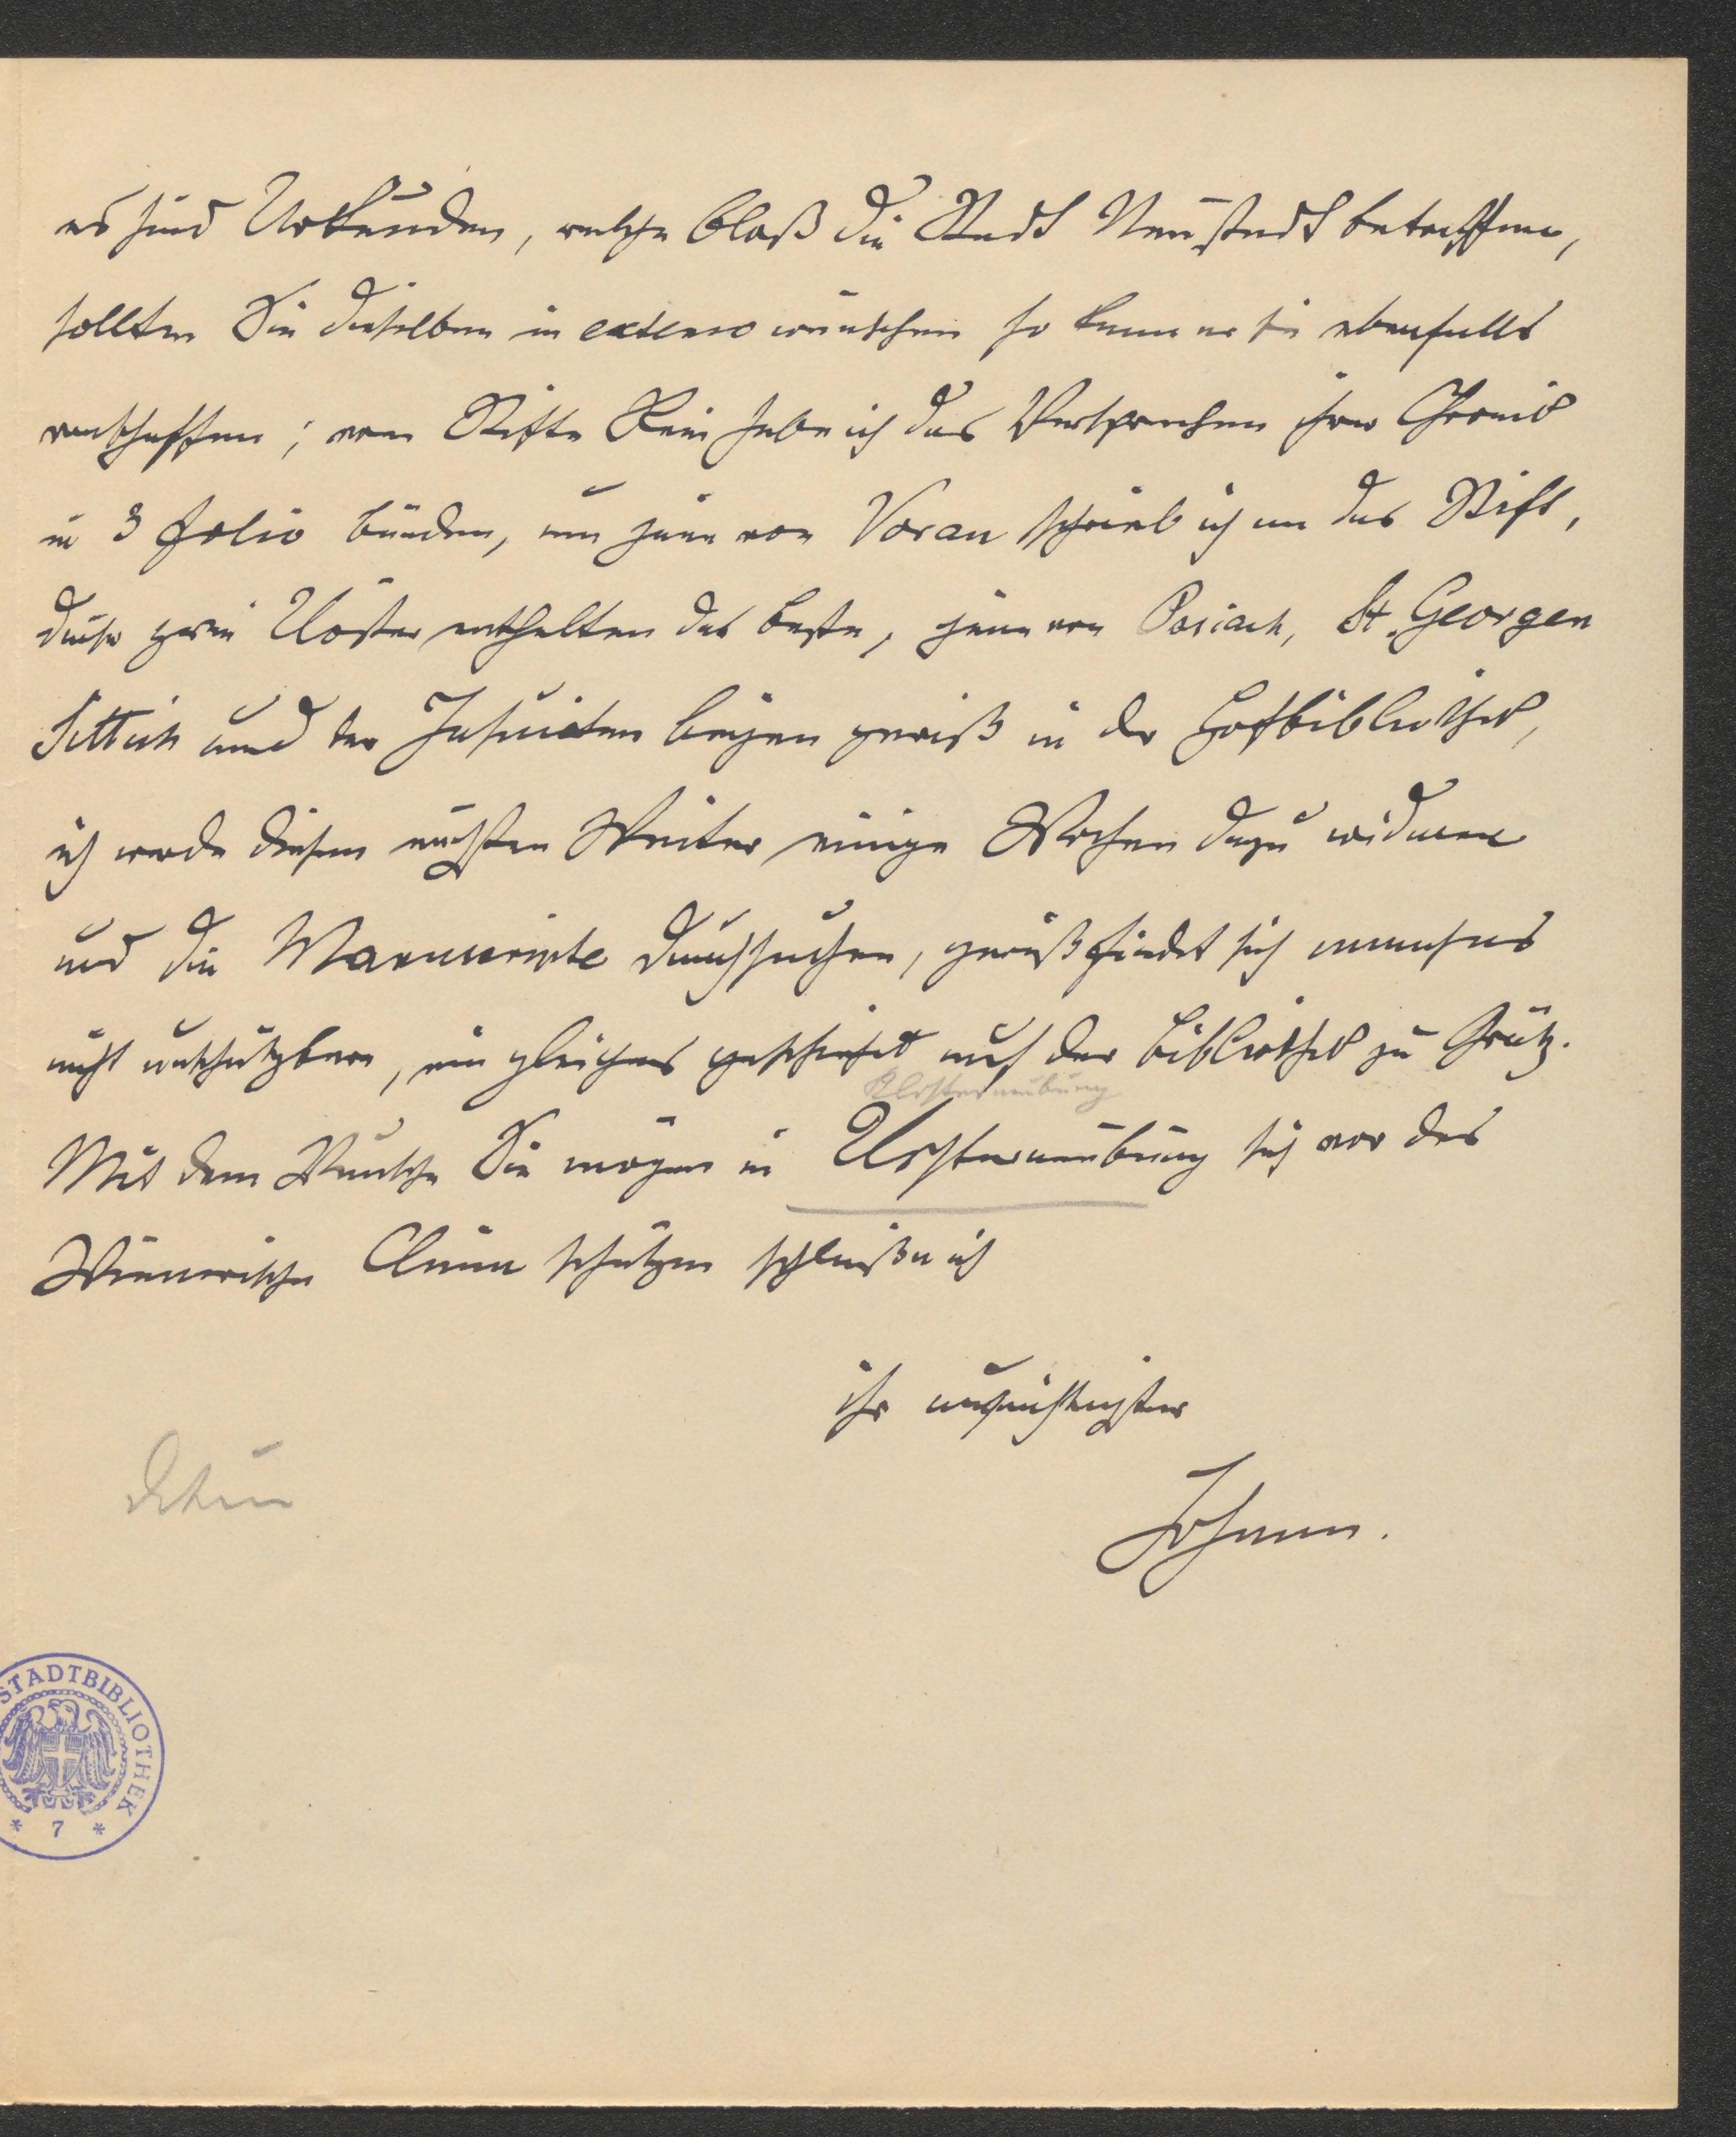 es sind Urkunden, welche bloß die Stadt Neustadt betreffen,
sollten Sie dieselben in extenso wünschen so kann er sie ebenfalls
verschaffen; vom Stifte Rein habe ich das Versprechen ihrer Chronik
in 3 folio bänden, um jene von Vorau schrieb ich an das Stift,
diese zwei Klöster enthalten das beste, jene von Pöriach, St. Georgen
Sittich und der Jesuiten liegen gewiß in der Hofbibliothek,
ich werde diesen nächsten Winter einige Wochen dazu widmen
und die Manuscripte durchsuchen, gewiß findet sich manches
nicht unschätzbare, ein gleiches geschieht auf der Bibliothek zu Grätz.
Klosterneuburg
Mit dem Wunsche Sie mögen in Klosterneuburg sich vor des
Wienerische Clima schützen schließe ich
ihr aufrichtigster
Johann.
STADTBIBLIOTHEK
* 7 *